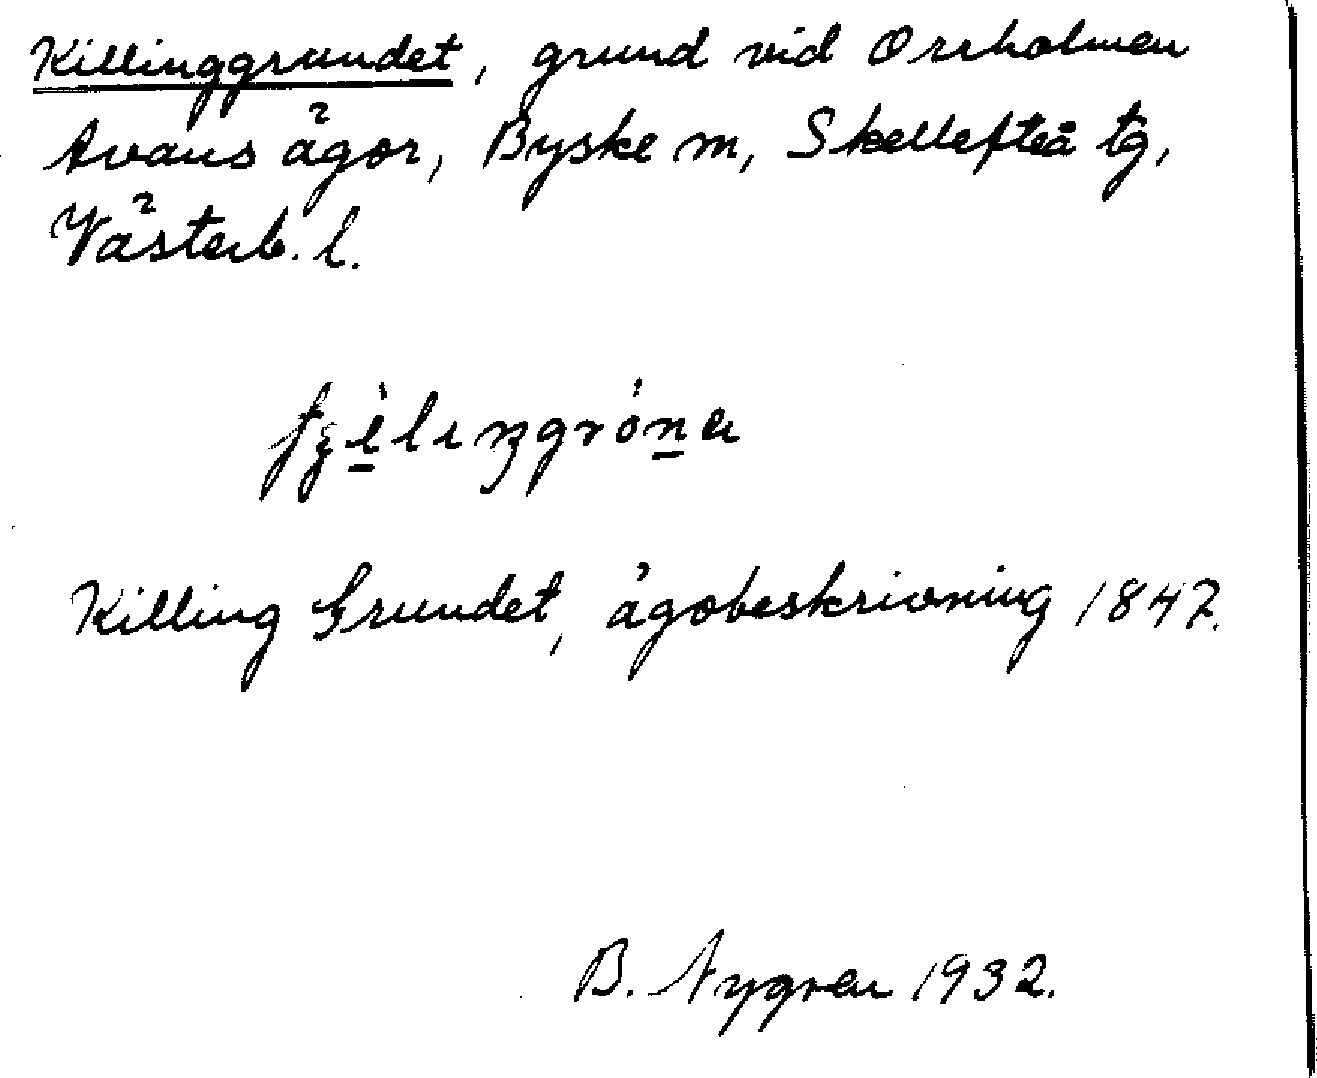 Killinggrundet, grund vid Orrholmen
Avans ägor, Byske sn, Skellefteå tg,
Västerb. l.
Killing Grundet, ägobeskrivning 1847.
B. Nygren 1932.